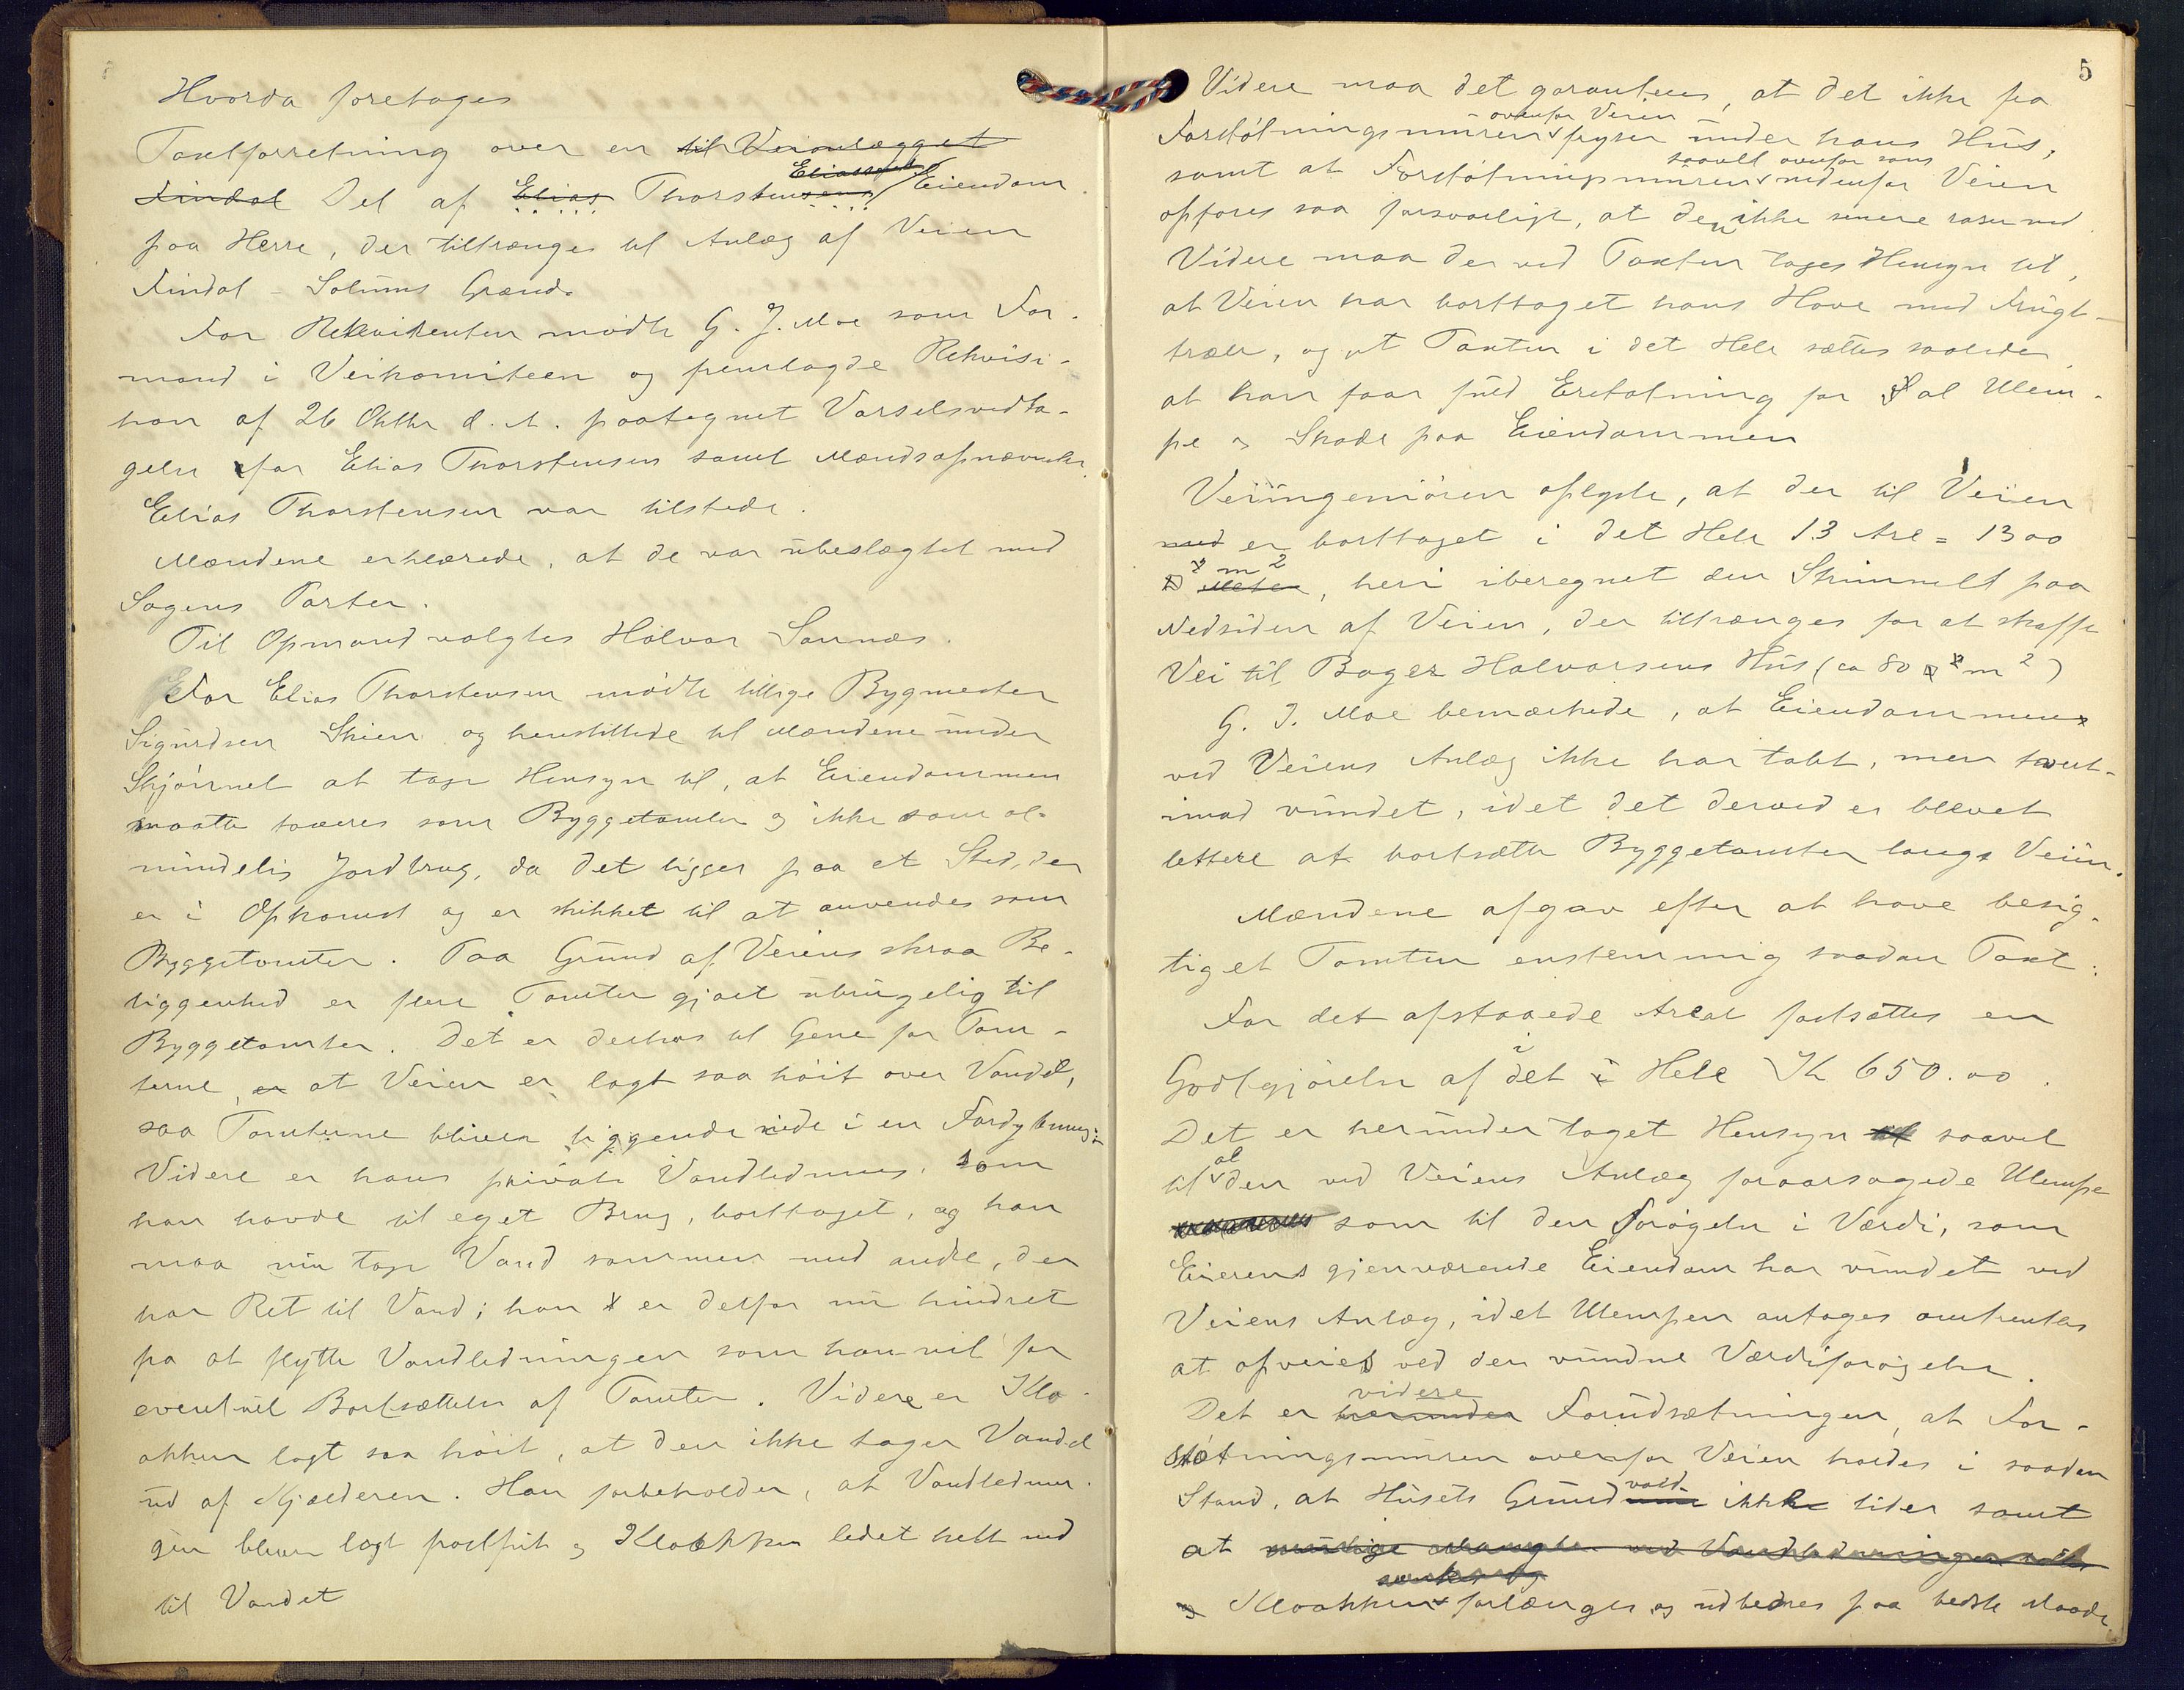 Hvorda foretoges
Taxtforretning over en til Veianlægget
Findal Del af Elias Thorstensens Eliassens Eiendom
paa Herre, der tiltrænges til Anlæg af Veien
Findal – Solums Grænd.
For Rekvirenten mødte G. J. Moe som For-
mand i Veikomiteen og fremlagde Rekvisi-
tion af 26 Oktbr d. A. paategnet Varselsvedta-
gelse for Elias Thorstensen samt Mændsopnævnelse
Elias Thorstensen var tilstede.
Mændene erklærede, at de var ubeslægtet med
Sagens Parter.
Til Opmand valgtes Halvor Sannæs.
For Elias Thorstensen mødte tillige Bygmester
Sigurdsen Skien og henstillede til Mændene under
Skjønnet at tage Hensyn til, at Eiendommen
maatte taxeres som Byggetomter og ikke som al-
mindelig Jordbrug, da det ligger paa et Sted, der
er i Opkomst og er skikket til at anvendes som
Byggetomter. Paa Grund af Veiens skraa Be-
liggenhed er flere Tomter gjort ubrugelig til
Byggetomter. Det er derhos til Gene for Tom-
terne, er at Veien er lagt saa høit over Vandet,
saa Tomterne bliver liggende nede i en Fordybning.
Videre er hans private Vandledning, som
han havde til eget Brug, borttaget, og han
maa nu tage Vand sammen med andre, der
har Ret til Vand; han er derfor nu hindret
fra at flytte Vandledningen som han vil for
eventuel Bortsættelse af Tomter. Videre er Klo-
akken lagt saa høit, at den ikke tager Vandet
ud af Kjælderen. Han forbeholder, at Vandlednin-
gen bliver lagt frostfrit og Kloakken ledet helt ned
til Vandet
5
Videre maa det garanteres, at det ikke fra
ovenfor Veien
Forstøtningsmuren fryser under hans Hus,
saavel ovenfor som
samt at Forstøtningsmuren nedenfor Veien
opføres saa forsvarligt, at den ikke senere raser ned.
Videre maa der ved Taxten tages Hensyn til,
at Veien har borttaget hans Have med Frugt-
træer, og at Taxten i det Hele sættes saaledes,
at han faar fuld Erstatning for al Ulem-
pe og Skade paa Eiendommen
Veiingeniøren oplyste, at der til Veien
med er borttaget i det Hele 13 Are = 1300
m 2
Meter, heri iberegnet den Strimmel paa
Nedsiden af Veien, der tiltrænges for at skaffe
Vei til Bager Halvorsens Hus (ca 80 m 2)
G. J. Moe bemærkede, at Eiendommen
ved Veiens Anlæg ikke har tabt, men tvert-
imod vundet, idet det derved er blevet
lettere at bortsætte Byggetomter langs Veien.
Mændene afgav efter at have besig-
tiget Tomten enstemmig saadan Taxt:
For det afstaaede Areal fastsættes en
Godtgjørelse af i det i Hele Kr 650.00.
Det er herunder taget Hensyn til saavel
al
til den ved Veiens Anlæg foraarsagede Ulempe
som til den Forøgelse i Værdi, som
Eierens gjenværende Eiendom har vundet ved
Veiens Anlæg, idet Ulempen antages omtrentlig
at opveies ved den vundne Værdiforøgelse.
videre
Det er herunder Forudsætningen, at For-
støtningsmuren ovenfor Veien holdes i saadan
vold
Stand, at Husets Grundmur ikke lider samt
at mulige Mangler ved Vandledningen rettes
og Kloakken forlænges og udbedres paa bedste Maade